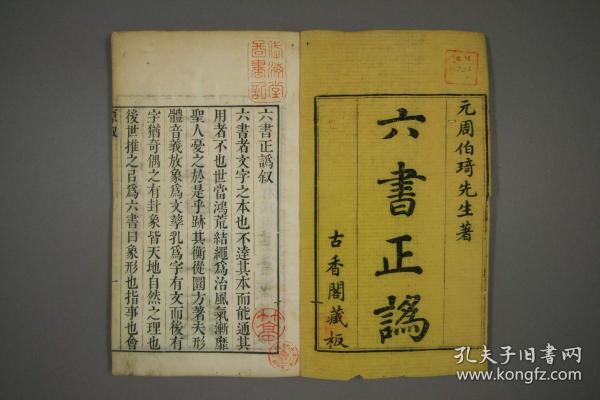 元周伯琦先生著
六書正譌
古香閣藏板
六書正譌叙
六書者文字之本也不達其本而能通其
用者不也世當鴻荒結繩爲治風氣漸靡
聖人憂之於是乎跡其衡從圜方著夫形
體音義放象爲文孳乳爲字有文而後有
字猶奇偶之有卦象皆天地自然之理也
後世推之㠯爲六書曰象形也指事也會
原叙
孔夫子旧书网
www.kongfz.com